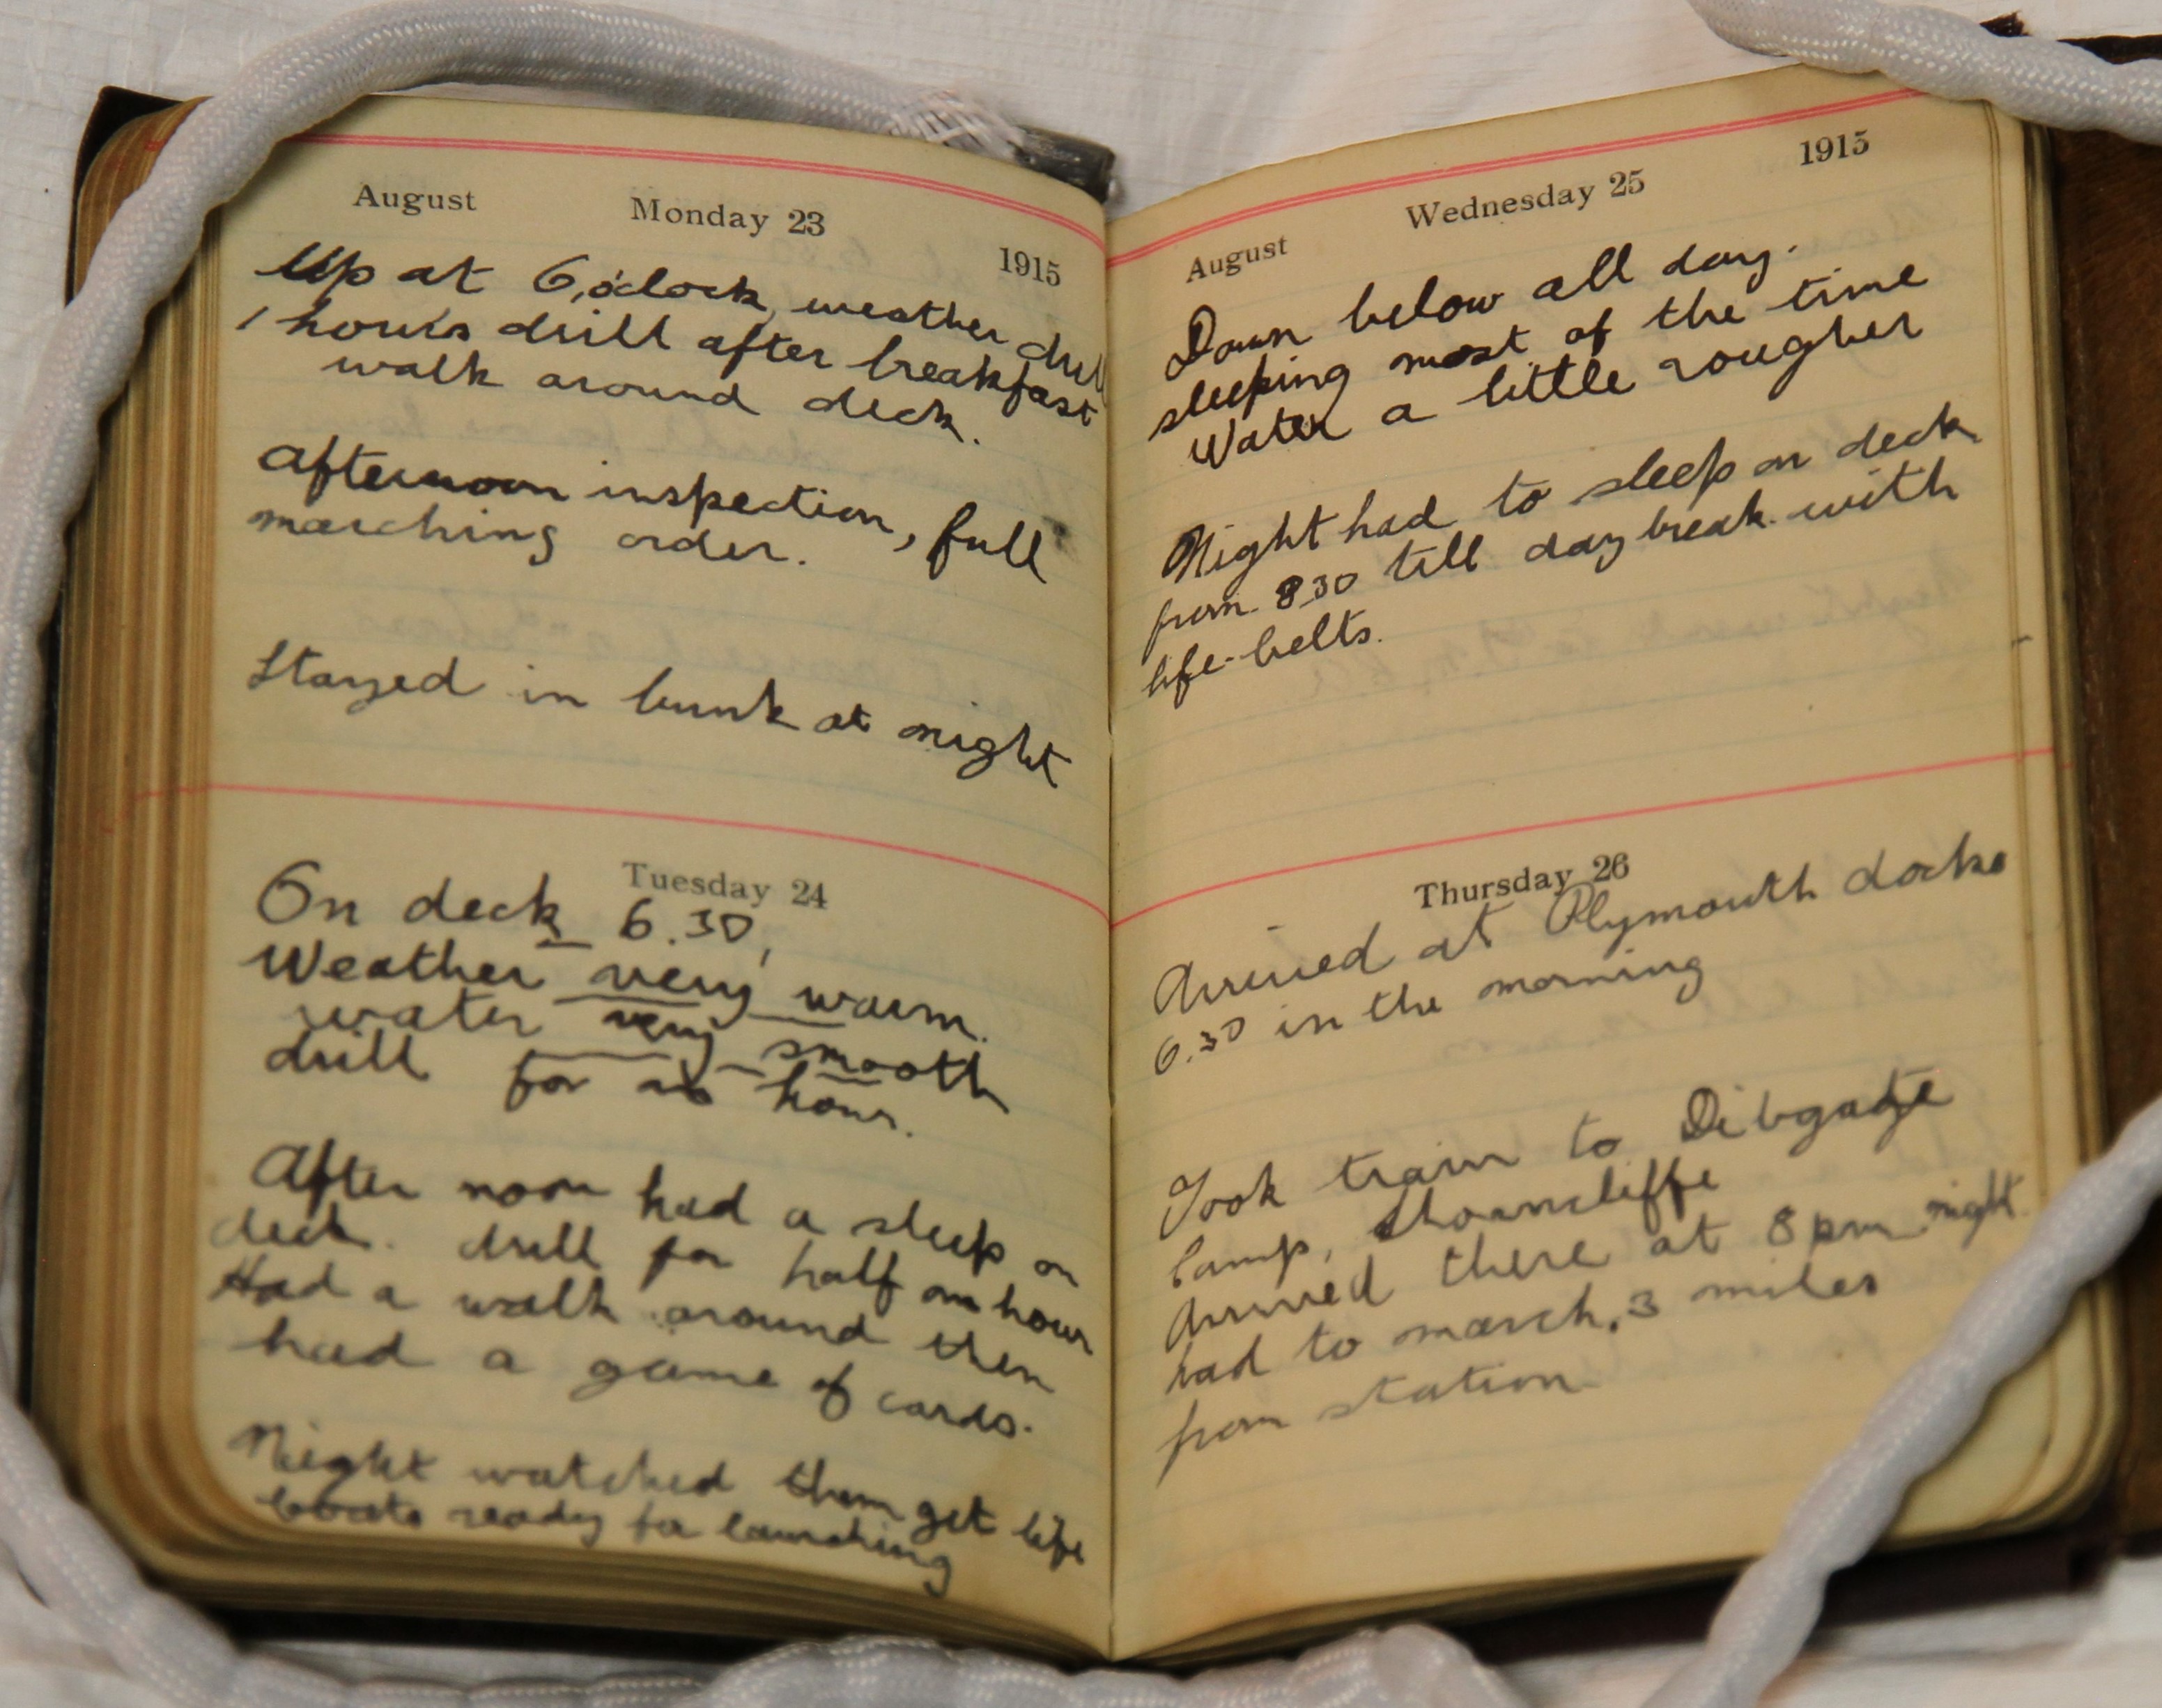 August Monday 23 1915
Up at 6,o'clock, weather dull
1 hour's drill after breakfast
walk around deck.
Afternoon inspection, full
marching order.
Stayed in bunk at night
Tuesday 24
On deck 6.30,
Weather very warm.
water very smooth
drill for an hour.
After noon had a sleep on
deck. drill for half an hour
Had a walk around then
had a game of cards.
Night watched them get life
boats ready for launching
August Wednesday 25 1915
Down below all day.
sleeping most of the time
Water a little rougher
Night had to sleep on deck
from 8.30 till day break with
life-belts.
Thursday 26
Arrived at Plymouth docks
6.30 in the morning
Took train to Dibgate
Camp, Shorncliffe
Arrived there at 8 pm night.
had to march, 3 miles
from station